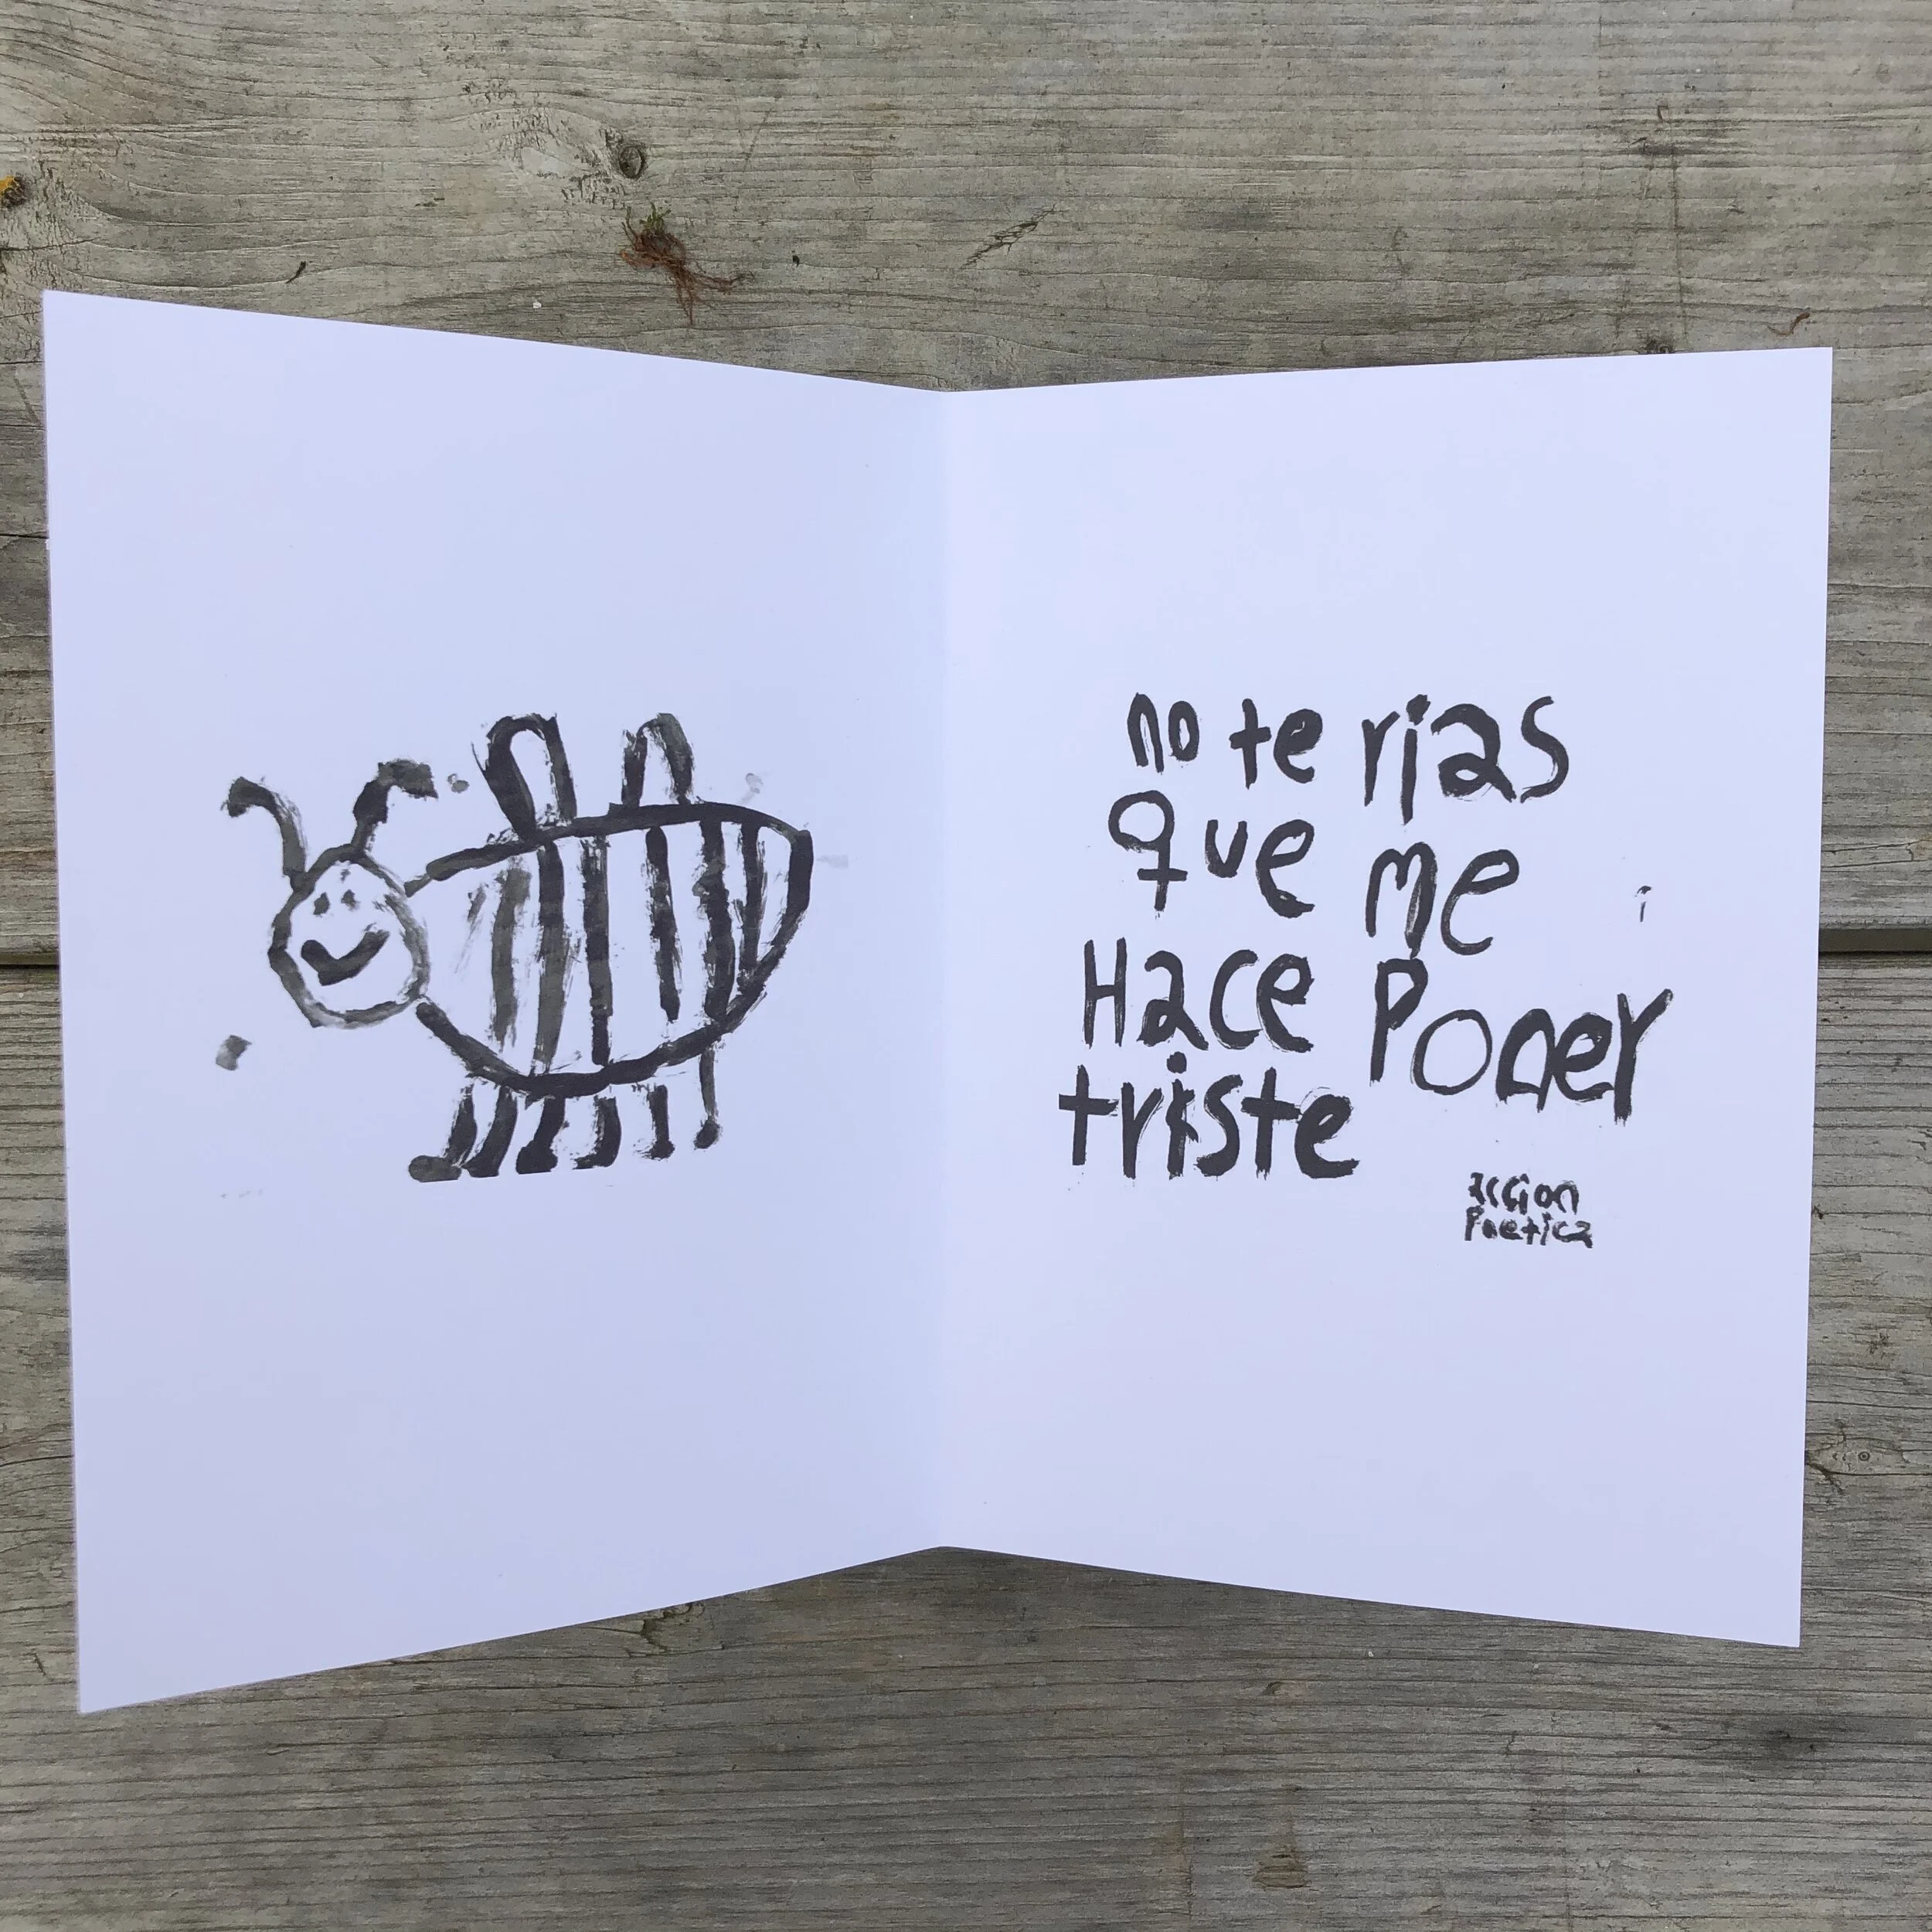 no te rias
que me
Hace Poner
triste
accion
Poetica